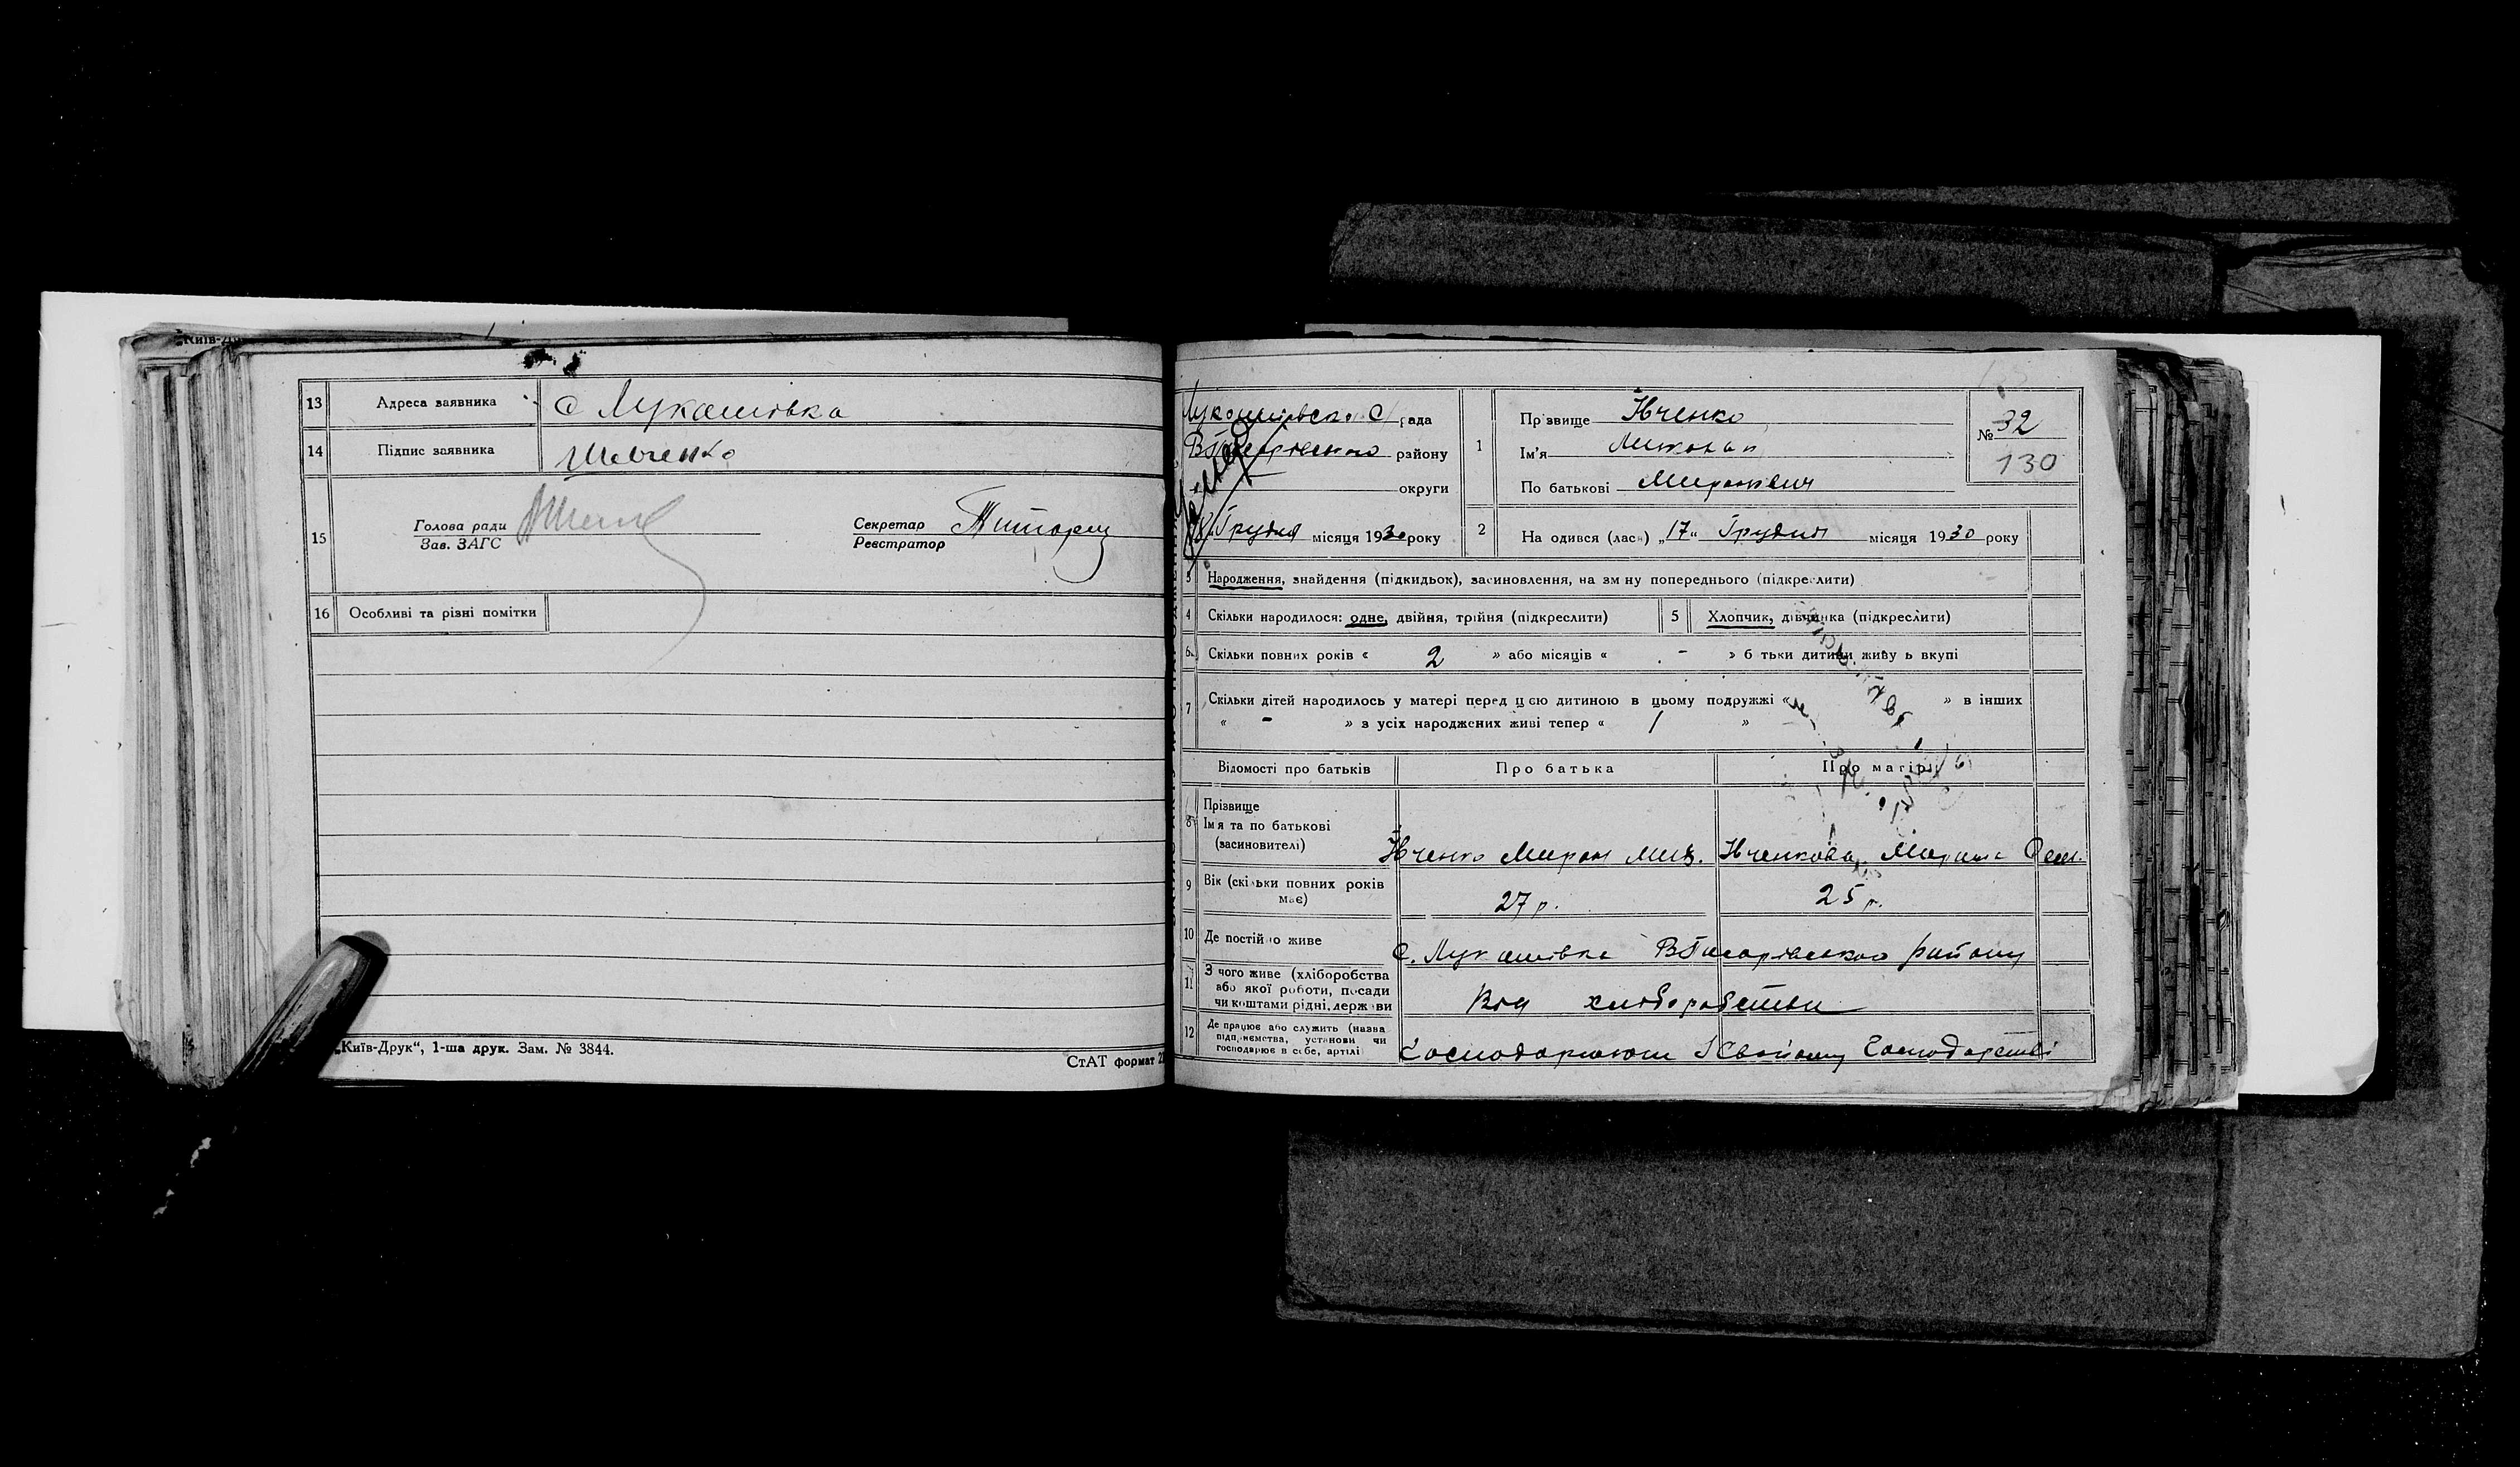 13 Адреса заявника с Лукашівка
14 Підпис заявника Шевченко
15 Голова ради
Зав. ЗАГС
Секретар
Реєстратор
16 Особливі та різні помітки
„Київ-Друк“, 1-ша друк. Зам. № 3844.
СтАТ формат
рада
району
округи
Грудня місяця 1930 року
1 Прізвище Ивченко
Ім'я Миколай
По батькові Миронович
№ 32
130
2 Народився (лась) „17“ Грудня місяця 1930 року
3 Народження, знайдення (підкидьок), засиновлення, на зміну попереднього (підкреслити)
4 Скільки народилося: одне, двійня, трійня (підкреслити)
5 Хлопчик, дівчинка (підкреслити)
6 Скільки повних років « 2 » або місяців « - » батьки дитини живуть вкупі
7 Скільки дітей народилось у матері перед цією дитиною в цьому подружжі « » в інших
« - » з усіх народжених живі тепер « 1 »
Відомості про батьків Про батька Про матір
8 Прізвище
Ім'я та по батькові
(засиновителі)
Ивченко Мирон Ивченкова
9 Вік (скільки повних років
має)
27 р. 25 р.
10 Де постійно живе с. Лукашівка району
11 З чого живе (хліборобства
або якої роботи, посади
чи коштами рідні, держави
Від хліборобства
12 Де працює або служить (назва
підприємства, установи чи
господарює в себе, артілі
Господарюють в Свойому Господарстві